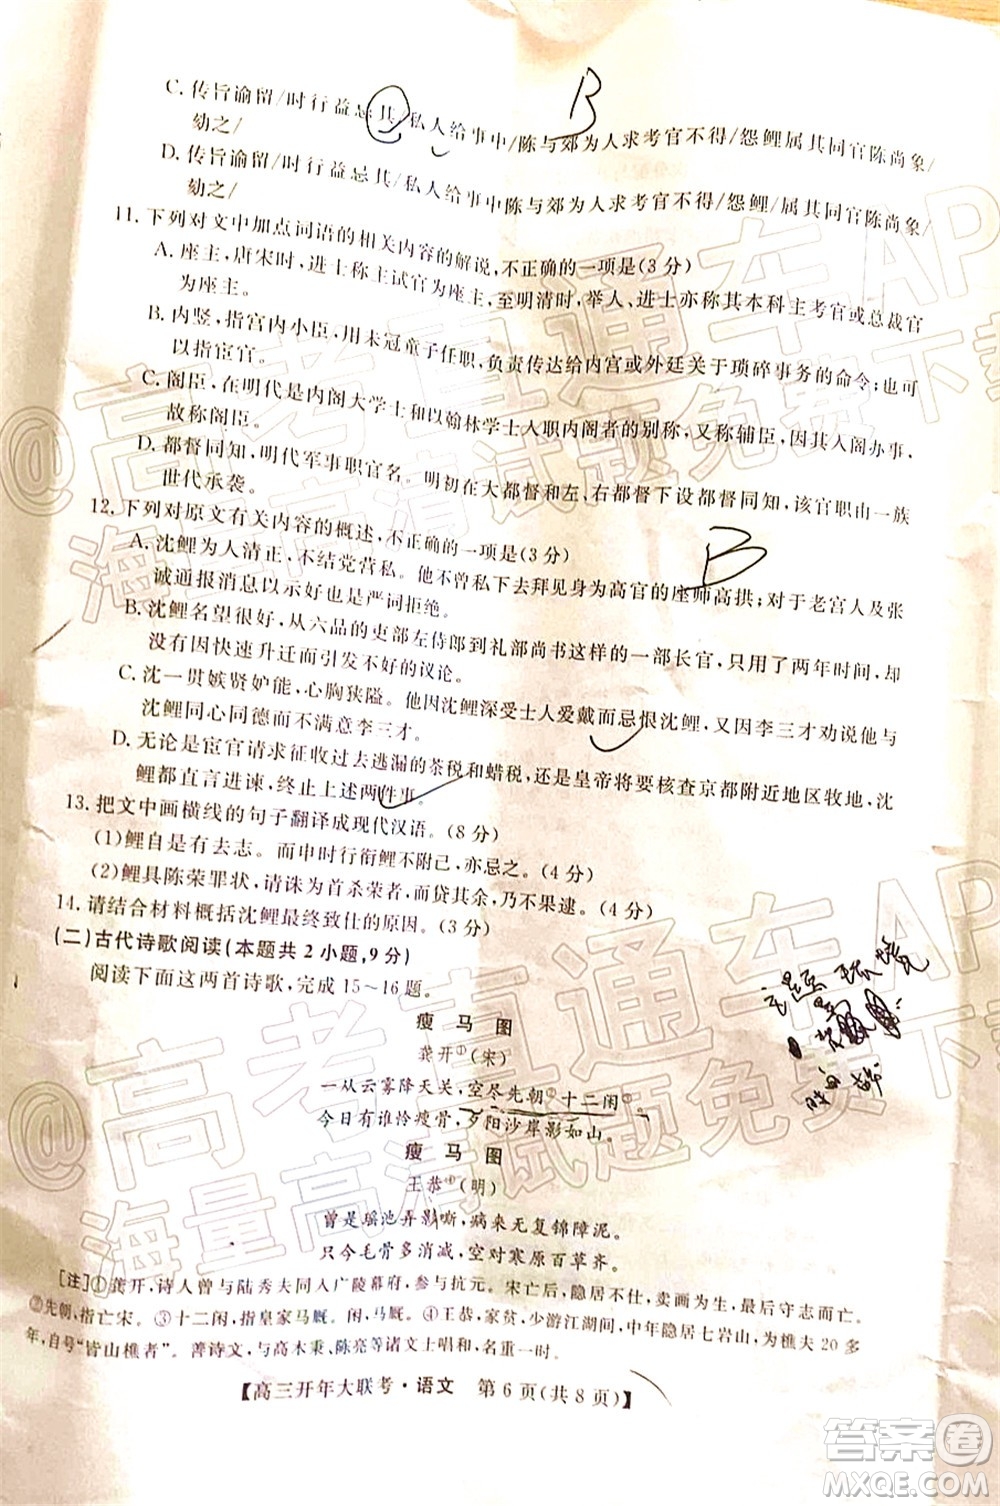 C. 传旨谕留/时行益忌其/私人给事中/陈与郊为人求考官不得/怨鲤属其同官陈尚象/
劾之/
D. 传旨谕留/时行益忌其/私人给事中陈与郊为人求考官不得/怨鲤/属其同官陈尚象/
劾之/
B
11. 下列对文中加点词语的相关内容的解说,不正确的一项是(3分)
A. 座主,唐宋时,进士称主试官为座主。至明清时,举人、进士亦称其本科主考官或总裁官
为座主。
B. 内竖,指宫内小臣,用未冠童子任职,负责传达给内宫或外廷关于琐碎事务的命令;也可
以指宦官。
C. 阁臣,在明代是内阁大学士和以翰林学士入职内阁者的别称,又称辅臣,因其入阁办事,
故称阁臣。
D. 都督同知,明代军事职官名。明初在大都督和左、右都督下设都督同知,该官职由一族
世代承袭。
12. 下列对原文有关内容的概述,不正确的一项是(3分)
B
A. 沈鲤为人清正,不结党营私。他不曾私下去拜见身为高官的座师高拱;对于老宫人及张
诚通报消息以示恩宠,也是严词拒绝。
B. 沈鲤名望很好,从六品的吏部左侍郎到礼部尚书这样的一部长官,只用了两年时间,却
没有因快速升迁而引发不好的议论。
C. 沈一贯嫉贤妒能,心胸狭隘。他因沈鲤深受士人爱戴而忌恨沈鲤,又因李三才劝说他与
沈鲤同心同德而不满意李三才。
D. 无论是宦官请求征收过去逃漏的茶税和蜡税,还是皇帝将要核查京都附近地区牧地,沈
鲤都直言进谏,终止上述两件事。
13. 把文中画横线的句子翻译成现代汉语。(8分)
(1)鲤自是有去志。而申时行衔鲤不附己,亦忌之。(4分)
(2)鲤具陈荣罪状,请诛为首杀荣者,而贷其余,乃不果逮。(4分)
14. 请结合材料概括沈鲤最终致仕的原因。(3分)
(二)古代诗歌阅读(本题共2小题,9分)
阅读下面这两首诗歌,完成15~16题。
瘦马图
龚开①(宋)
一从云雾降天关,空尽先朝②十二闲③。
今日有谁怜瘦骨,夕阳沙岸影如山。
瘦马图
王恭④(明)
曾是瑶池弄影嘶,病来无复锦障泥。
只今毛骨多消减,空对寒原百草齐。
[注]①龚开,诗人曾与陆秀夫同入广陵幕府,参与抗元。宋亡后,隐居不仕,卖画为生,最后守志而亡。
②先朝,指亡宋。③十二闲,指皇家马厩。闲,马厩。④王恭,家贫,少游江湖间,中年隐居七岩山,为樵夫20多
年,自号“皆山樵者”。善诗文,与高木秉、陈亮等诸文士唱和,名重一时。
【高三开年大联考·语文 第6页(共8页)】
@高考直通车APP
海量高清试题免费下载
@高考直通车APP
海量高清试题免费下载
答案圈
MXQE.COM